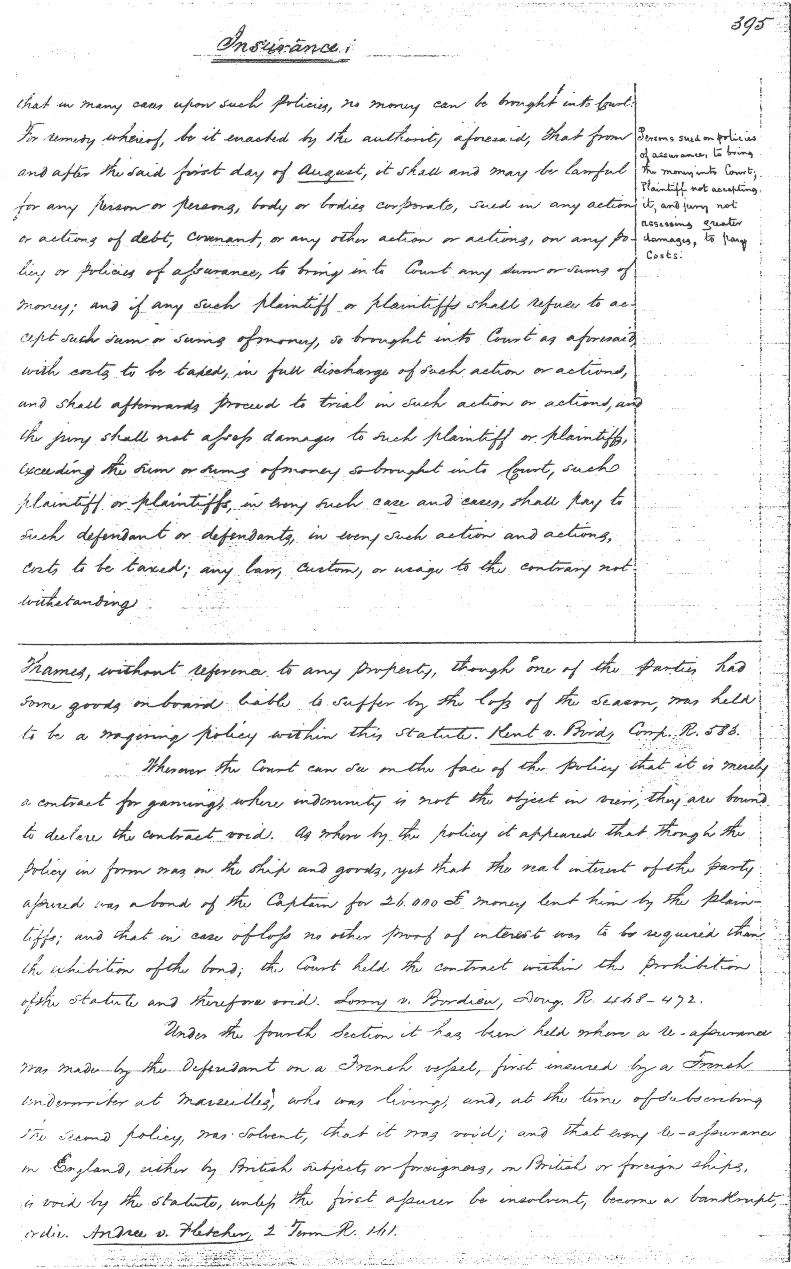 395
Insurance:
that in many cases upon such policies, no money can be brought into Court:
For remedy whereof, be it enacted by the authority aforesaid, That from
and after the said first day of August, it shall and may be lawful
for any person or persons, body or bodies corporate, sued in any action
or actions of debt, covenant, or any other action or actions, on any po-
licy or policies of assurance, to bring into Court any sum or sums of
money; and if any such plaintiff or plaintiffs shall refuse to ac-
cept such sum or sums of money, so brought into Court as aforesaid,
with costs to be taxed, in full discharge of such action or actions,
and shall afterwards proceed to trial in such action or actions, and
the jury shall not assess damages to such plaintiff or plaintiffs,
exceeding the sum or sums of money so brought into Court, such
plaintiff or plaintiffs, in every such case and cases, shall pay to
such defendant or defendants, in every such action and actions,
costs to be taxed; any law, custom, or usage to the contrary not-
withstanding
Persons sued on policies
of assurance, to bring
the money into Court;
Plaintiff not accepting
it, and jury not
assessing greater
damages, to pay
Costs.
Thames, without reference to any property, though one of the parties had
some goods onboard liable to suffer by the loss of the season, was held
to be a wagering policy within this statute. Kent v. Bird, Comp. R. 583.
Wherever the Court can see on the face of the policy that it is merely
a contract for gaming, where indemnity is not the object in view, they are bound
to declare the contract void. As where by the policy it appeared that though the
policy in form was on the ship and goods, yet that the real interest of the party
assured was a bond of the Captain for 26.000 £ money lent him by the plain-
tiffs; and that in case of loss no other proof of interest was to be required than
the exhibition of the bond; the Court held the contract within the prohibition
of the statute and therefore void. Lowry v. Bordieu, Doug. R. 468-472.
Under the fourth Section it has been held where a re-assurance
was made by the Defendant on a French vessel, first insured by a French
underwriter at Marseilles, who was living, and, at the time of subscribing
the second policy, was solvent, that it was void; and that every re-assurance
in England, either by British subjects or foreigners, on British or foreign ships,
is void by the statute, unless the first assurer be insolvent, become a bankrupt,
or die. Andree v. Fletcher, 2 Term R. 161.